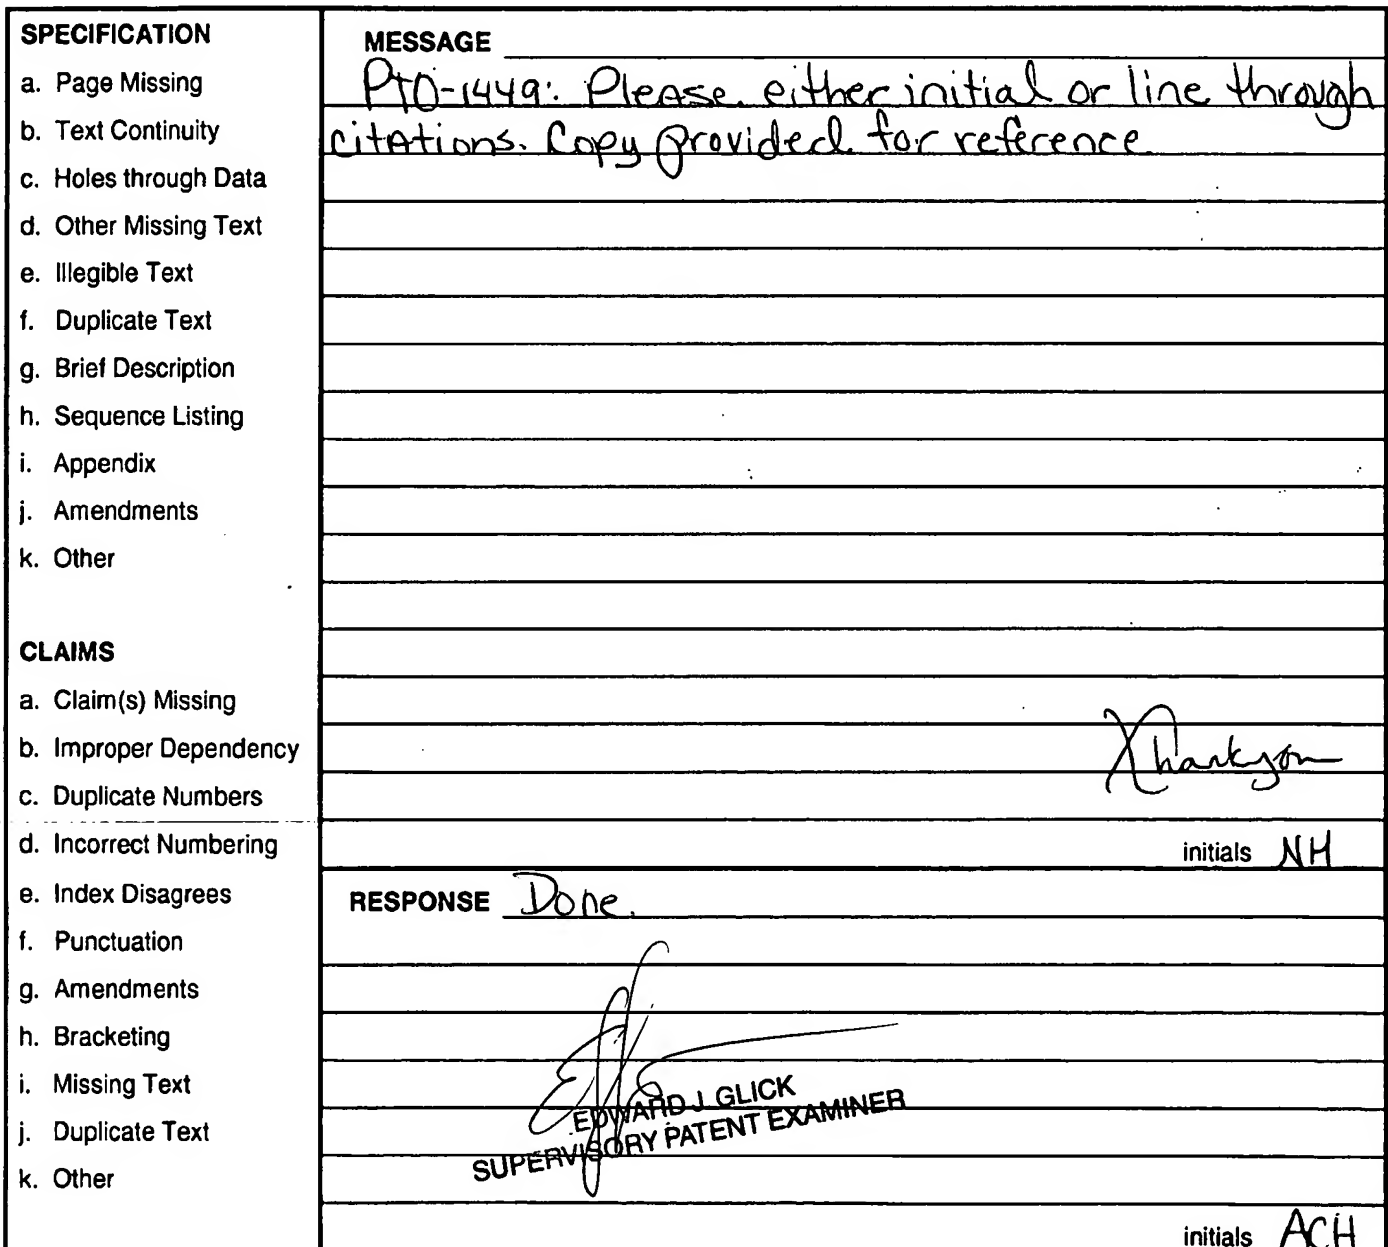 SPECIFICATION
a. Page Missing
b. Text Continuity
c. Holes through Data
d. Other Missing Text
e. Illegible Text
f. Duplicate Text
g. Brief Description
h. Sequence Listing
i. Appendix
j. Amendments
k. Other
CLAIMS
a. Claim(s) Missing
b. Improper Dependency
c. Duplicate Numbers
d. Incorrect Numbering
e. Index Disagrees
f. Punctuation
g. Amendments
h. Bracketing
i. Missing Text
j. Duplicate Text
k. Other
MESSAGE
PTO-1449: Please either initial or line through
citations. Copy provided for reference
Thank you
initials NH
RESPONSE Done.
EDWARD J. GLICK
SUPERVISORY PATENT EXAMINER
initials ACH